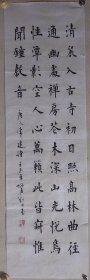 清晨入古寺初日照高林曲徑
通幽處禪房花木深山光悅鳥
性潭影空人心萬籟此皆寂惟
聞鐘磬音
唐人常建詩